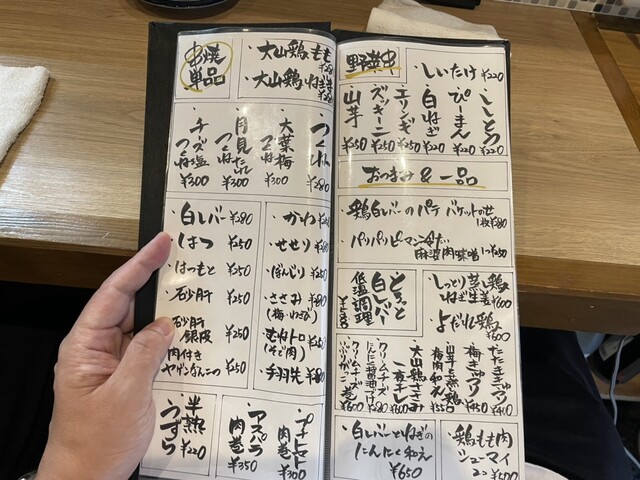 串焼
単品
・大山鶏もも
・大山鶏ねぎま
・つくね ¥280
・大葉梅つくね ¥300
・月見だれつくね ¥300
・チーズ塩つくね ¥300
・白レバー ¥280
・はつ ¥250
・はつもと ¥250
・砂肝 ¥250
・砂肝銀皮 ¥250
・肉付きヤゲンなんこつ ¥250
・かわ
・せせり
・ぼんじり
・ささみ
(梅・わさび)
・むねトロ
(そで肉)
・手羽先
・半熟うずら ¥220
・アスパラ肉巻 ¥350
・プチトマト肉巻 ¥300
野菜串
・しいたけ ¥220
・ししとう ¥220
・ぴーまん ¥220
・白ねぎ ¥220
・エリンギ ¥250
・ズッキーニ ¥250
・山芋 ¥250
おつまみ & 一品
・鶏白レバーのパテ バケットのせ
・パリパリピーマン
麻婆肉味噌
とろっと白レバー低温調理
・しっとり蒸し鶏ねぎ生姜 ¥600
・よだれ鶏 ¥600
・たたききゅうり
・梅きゅうり
・山芋と蒸し鶏梅肉和え ¥550
・大山鶏ささみ一夜干し ¥600
・クリームチーズにんにく醤油づけ
・クリームチーズいぶりがっこ ¥600
・白レバーとねぎのにんにく和え ¥650
・鶏もも肉シューマイ
2コ ¥500